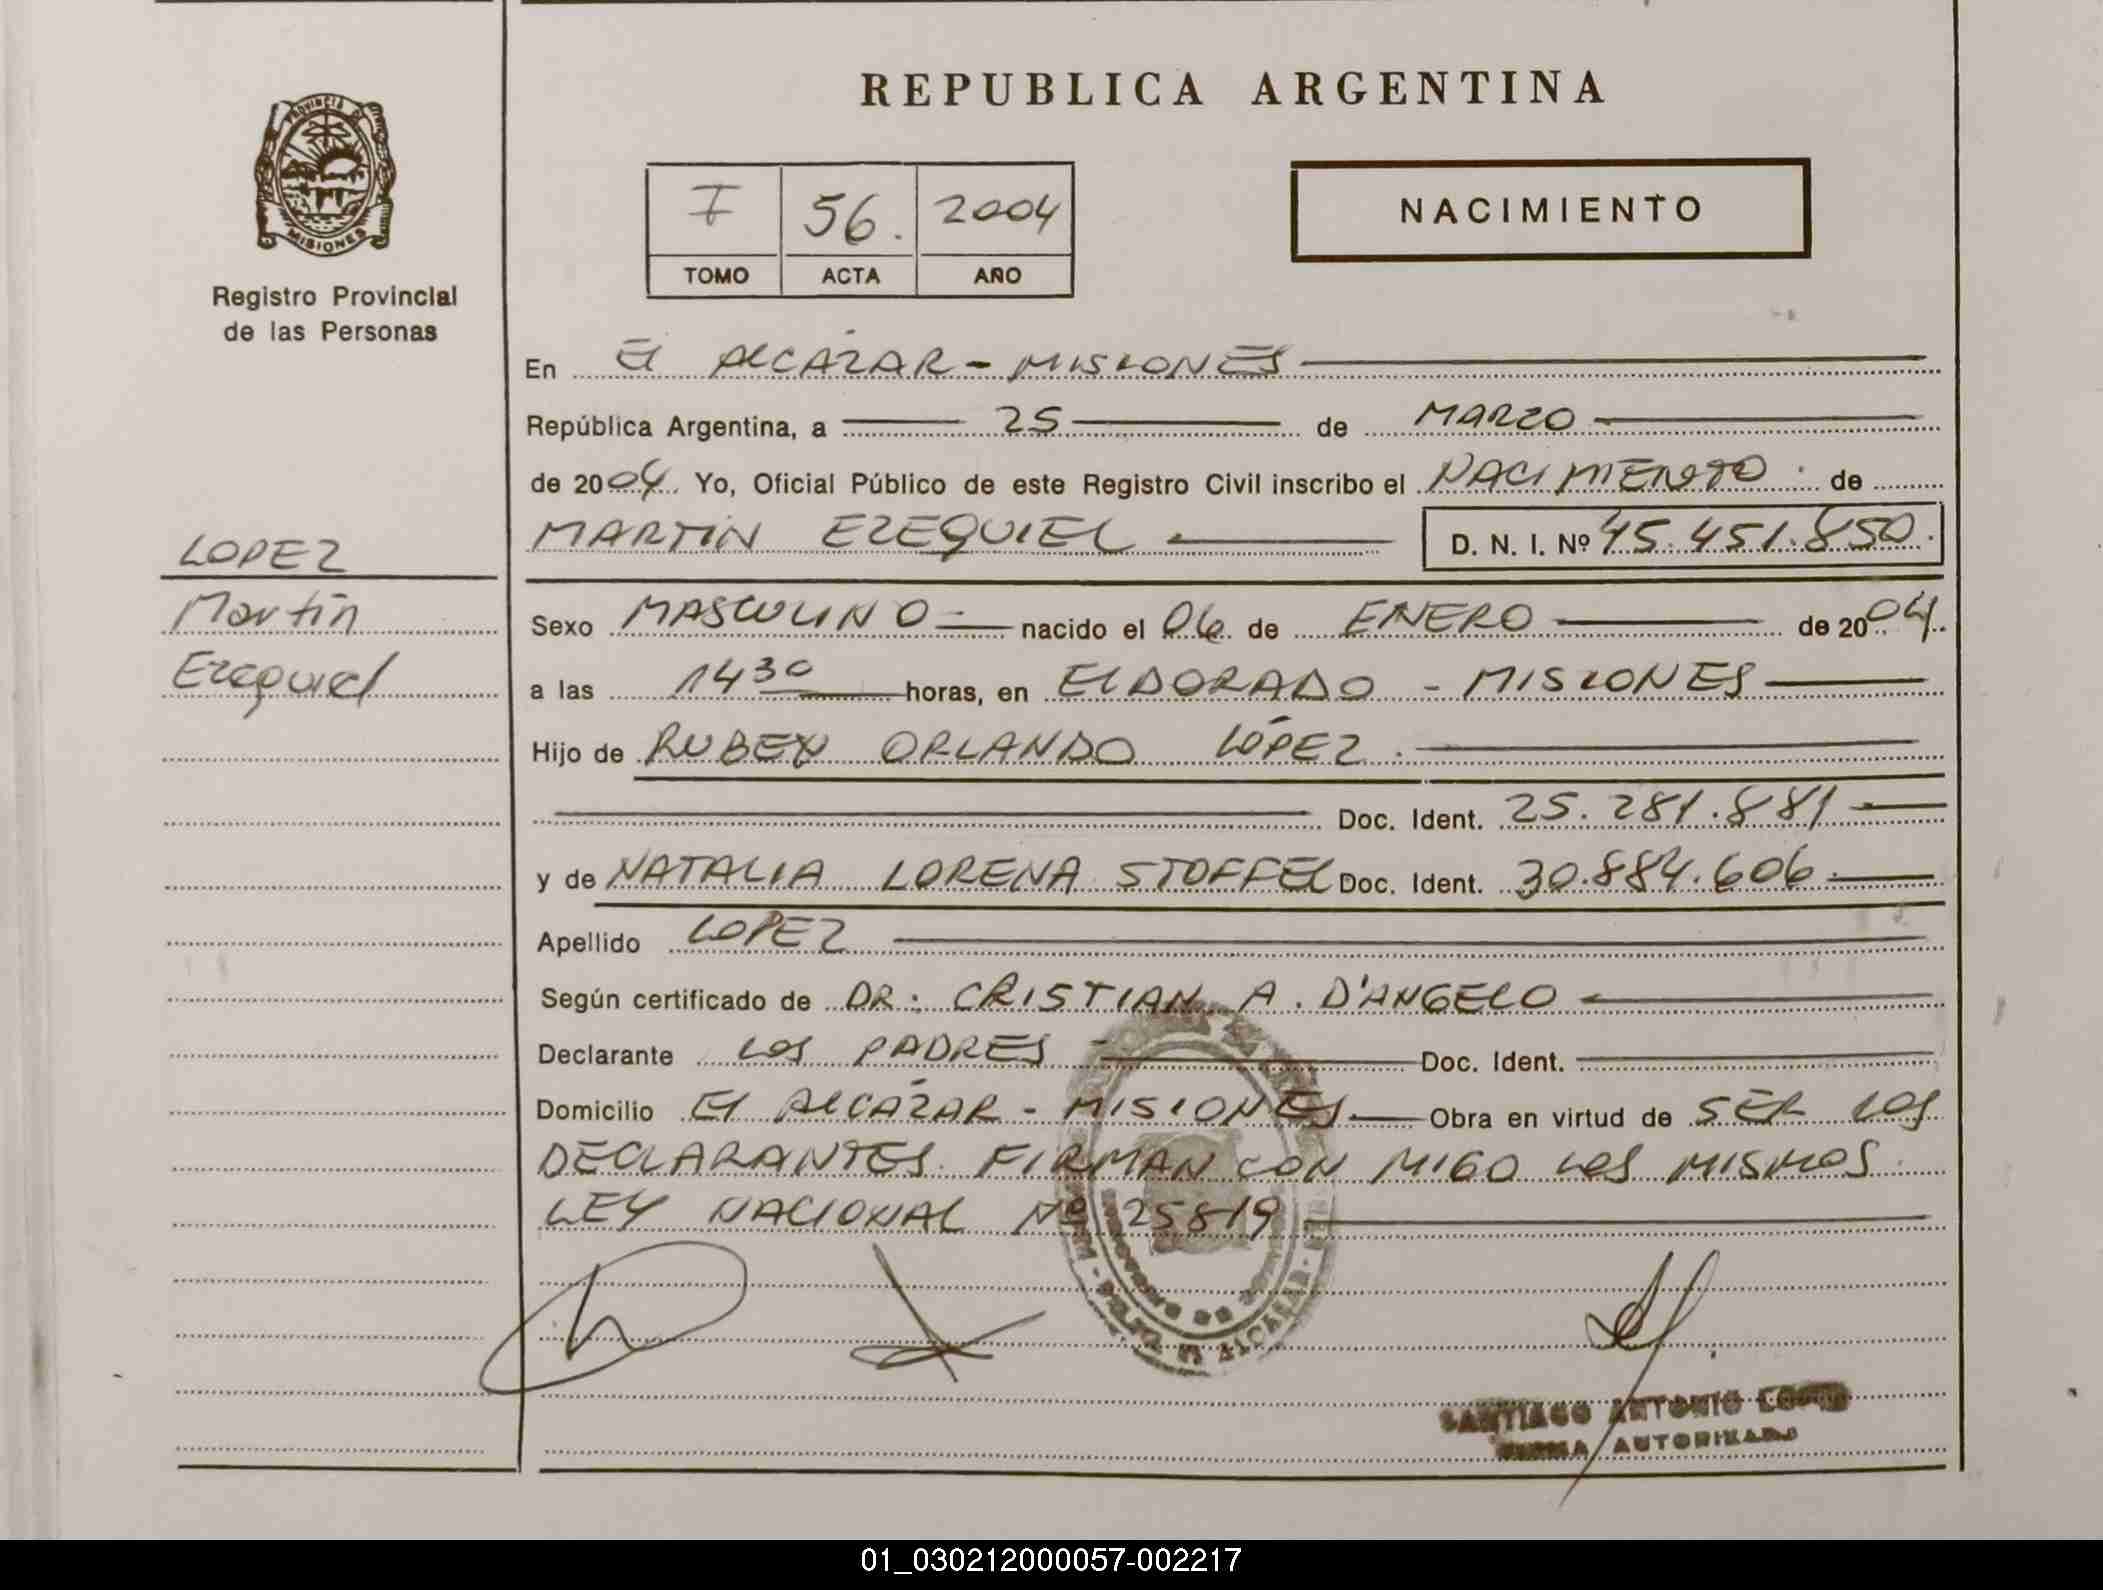 REPUBLICA ARGENTINA
PROVINCIA DE
MISIONES
Registro Provincial
de las Personas
I 56. 2004
TOMO ACTA AÑO
NACIMIENTO
En El ALCÁZAR - MISIONES
República Argentina, a 25 de MARZO
de 2004. Yo, Oficial Público de este Registro Civil inscribo el NACIMIENTO de
MARTIN EZEQUIEL D. N. I. Nº 45.451.850.
LOPEZ
Martin
Ezequiel
Sexo MASCULINO nacido el 06 de ENERO de 2004.
a las 14 30 horas, en ELDORADO - MISIONES
Hijo de RUBEN ORLANDO LÓPEZ.
Doc. Ident. 25.281.881
y de NATALIA LORENA STOFFEL Doc. Ident. 30.884.606
Apellido LOPEZ
Según certificado de DR. CRISTIAN A. D'ANGELO
Declarante LOS PADRES Doc. Ident.
Domicilio El ALCÁZAR - MISIONES Obra en virtud de SER LOS
DECLARANTES. FIRMAN CON MIGO LOS MISMOS.
LEY NACIONAL Nº 25819
SANTIAGO ANTONIO
FIRMA AUTORIZADA
01_030212000057-002217